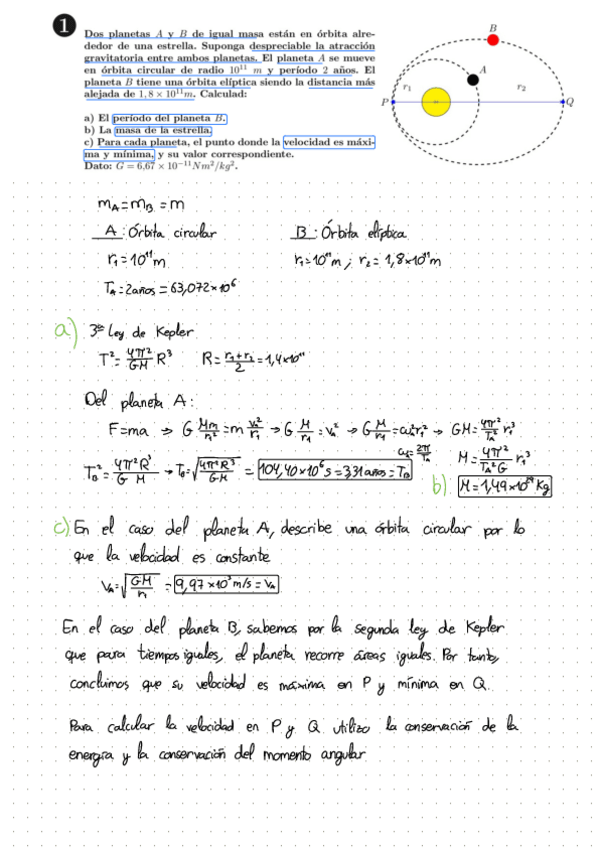 1 Dos planetas A y B de igual masa están en órbita alre-
dedor de una estrella. Suponga despreciable la atracción
gravitatoria entre ambos planetas. El planeta A se mueve
en órbita circular de radio 10¹¹ m y período 2 años. El
planeta B tiene una órbita elíptica siendo la distancia más
alejada de 1,8 × 10¹¹ m. Calculad:
a) El período del planeta B.
b) La masa de la estrella.
c) Para cada planeta, el punto donde la velocidad es máxi-
ma y mínima, y su valor correspondiente.
Dato: G = 6,67 × 10⁻¹¹ Nm²/kg².
B
A
r₁
r₂
P
Q
m_A = m_B = m
A: Órbita circular
B: Órbita elíptica
r₁ = 10¹¹ m
r₁ = 10¹¹ m ; r₂ = 1,8×10¹¹ m
T_A = 2 años = 63,072×10⁶
a) 3ª Ley de Kepler
T² = 4π²/GM R³ R = (r₁+r₂)/2 = 1,4×10¹¹
Del planeta A:
F=ma → G Mm/r₁² = m v_A²/r₁ → G M/r₁ = v_A² → G M/r₁ = ω_A² r₁² → GM = 4π²/T_A² r₁³
ω_A = 2π/T_A
M = 4π²/(T_A² G) r₁³
T_B² = 4π²R³/(G M) → T_B = √(4π²R³/(G·M)) = 104,40×10⁶ s = 3,31 años = T_B
b) M = 1,49×10²⁹ Kg
c) En el caso del planeta A, describe una órbita circular por lo
que la velocidad es constante
V_A = √(G·M/r₁) = 9,97×10³ m/s = V_A
En el caso del planeta B, sabemos por la segunda ley de Kepler
que para tiempos iguales, el planeta recorre áreas iguales. Por tanto,
concluimos que su velocidad es máxima en P y mínima en Q.
Para calcular la velocidad en P y Q utilizo la conservación de la
energía y la conservación del momento angular